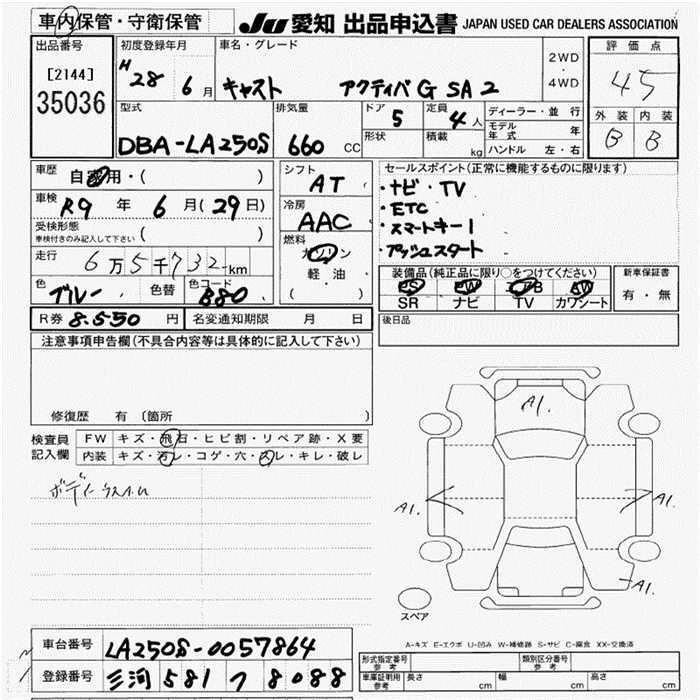 車内保管・守衛保管
JU 愛知 出品申込書 JAPAN USED CAR DEALERS ASSOCIATION
出品番号
[2144]
35036
初度登録年月
H28 6月
車名・グレード
キャスト アクティバ G SA 2
2WD
4WD
評価点
45
外装 内装
B B
型式
DBA-LA250S
排気量
660 CC
ドア
5
定員
4人
形状
積載
kg
ディーラー・並行
モデル年式 年
ハンドル 左・右
車歴
自家用・( )
車検
R9年 6月(29日)
受検形態
車検付きのみ記入して下さい ( )
走行
6万5千732km
色
ブルー
色替
色コード
B80
シフト
AT
冷房
AAC
燃料
ガソリン
軽油
( )
セールスポイント(正常に機能するものに限ります)
・ナビ・TV
・ETC
・スマートキー1
・プッシュスタート
装備品(純正品に限り○をつけてください)
PS PW AB AW
SR ナビ TV カワシート
新車保証書
有・無
R券 8.550円 名変通知期限 月 日
後日品
注意事項申告欄(不具合内容等は具体的に記入して下さい)
修復歴 有 (箇所 )
検査員
記入欄
FW キズ・飛石・ヒビ割・リペア跡・X要
内装 キズ・汚レ・コゲ・穴・スレ・キレ・破レ
A1.
A1.
A1.
A1.
スペア
A-キズ E-エクボ U-凹み W-補修跡 S-サビ C-腐食 XX-交換済
車台番号 LA250S-0057864
登録番号 三河 581 フ 8088
形式指定番号
参考
類別区分番号
参考
車庫証明用
参考
長さ cm 幅 cm 高さ cm